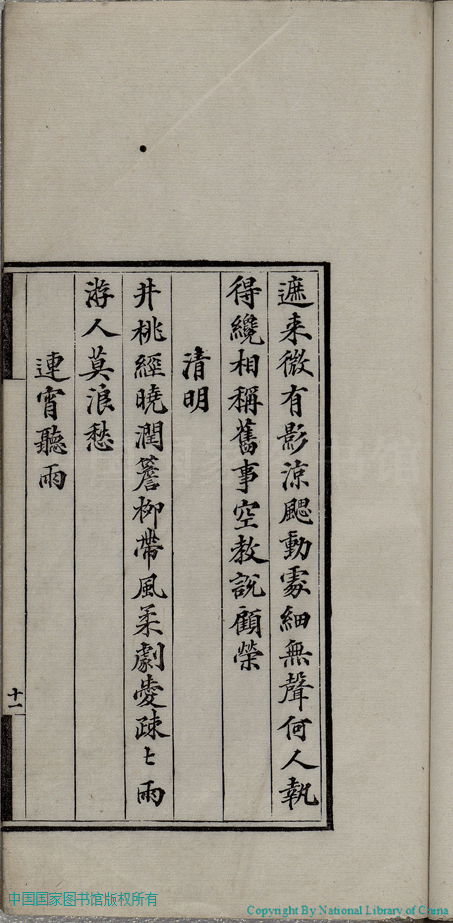 遮来微有影涼颸動處細無聲何人執
得纔相稱舊事空教說顧榮
清明
井桃經曉潤簷柳帶風柔劇愛疎〻雨
游人莫浪愁
連宵聽雨
十一
中国国家图书馆版权所有
Copyright By National Library of China